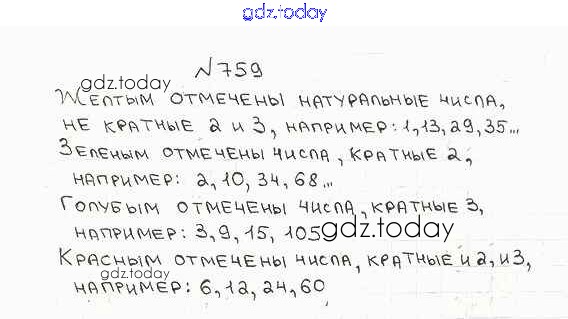 gdz.today
№759
gdz.today
Желтым отмечены натуральные числа,
не кратные 2 и 3, например: 1, 13, 29, 35...
Зеленым отмечены числа, кратные 2,
например: 2, 10, 34, 68...
Голубым отмечены числа, кратные 3,
например: 3, 9, 15, 105
gdz.today
Красным отмечены числа, кратные и 2, и 3,
gdz.today
например: 6, 12, 24, 60